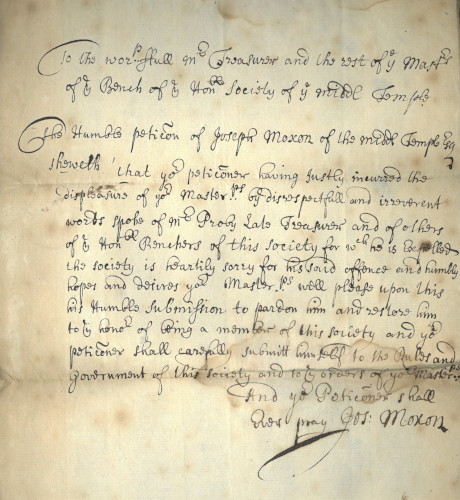 To the wor:ll full mr Treasurer and the rest of ye Mastrs
of ye Bench of ye Honble Society of ye middl Temple
The Humble peticon of Joseph Moxon of the midd Temple Esq
sheweth that yor peticoner having justly incurred the
displeasure of yor Masterps by disrespectfull and irreverent
words spoke of mr Proby Late Treasurer and of others
of ye Honble Benchers of this society for wch he is Expelled
the society is heartily sorry for his said offence and humbly
hopes and desires yor Masterps well please upon this
his Humble submission to pardon him and restore him
to ye honor of being a member of this society and yor
peticoner shall carefully submitt himself to the Rules and
Government of this society and to ye orders of yor Masterps
And yor Peticoner shall
Ever pray Jos: Moxon